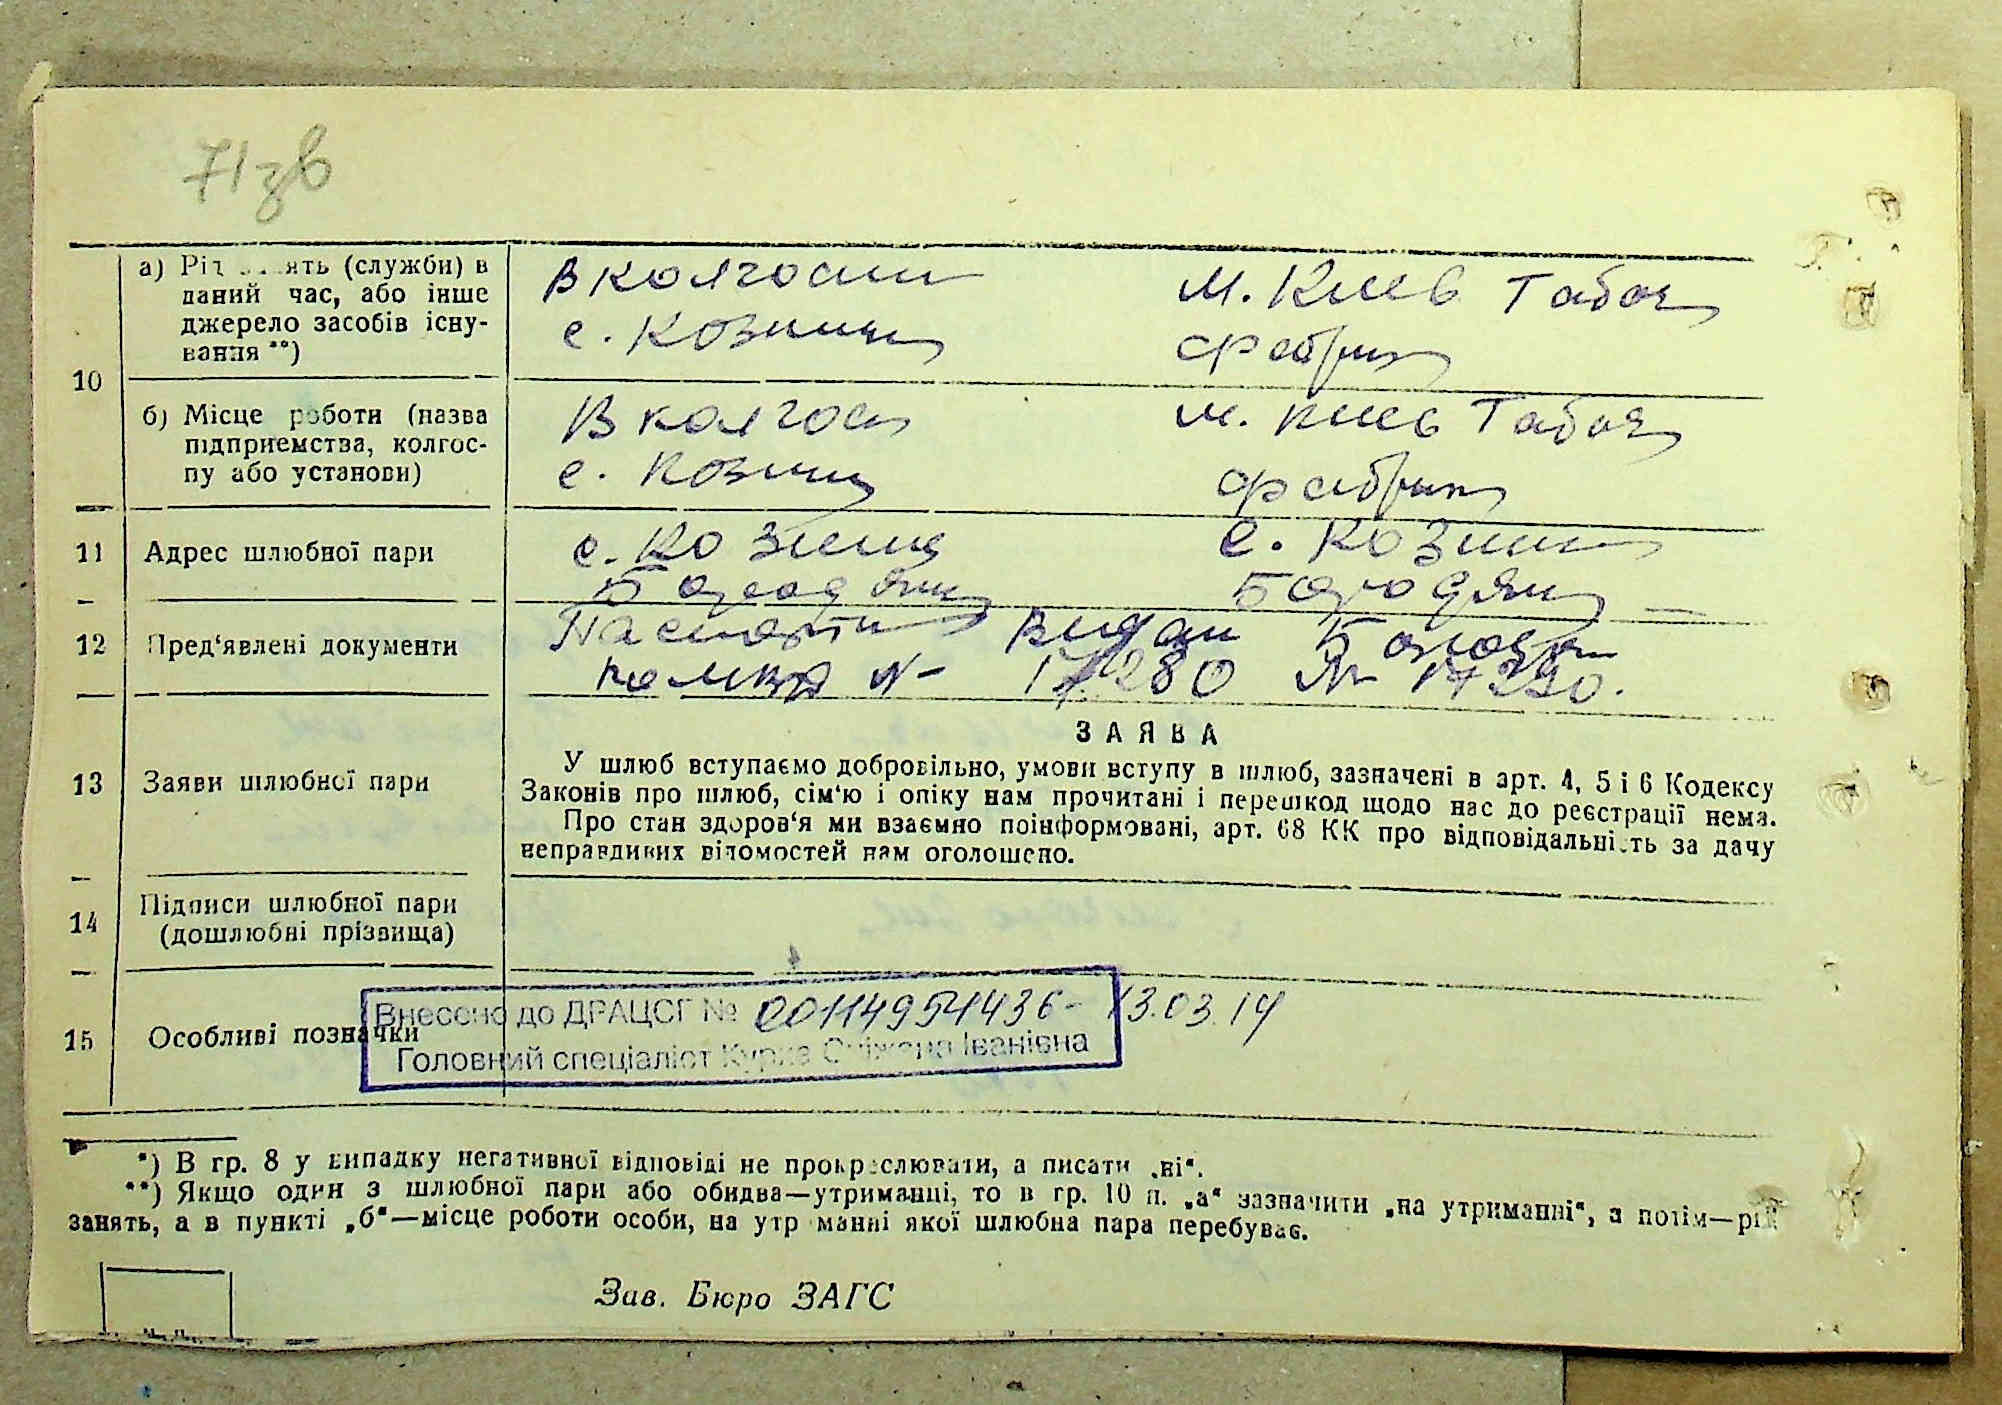 71зв
а) Рід занять (служби) в
даний час, або інше
джерело засобів існу-
вання **)
В колгоспі
м. Киев Табач
с. Козинці
фабрик
10
б) Місце роботи (назва
підприємства, колгос-
пу або установи)
В колгосп
м. Киев Табач
с. Козинц
фабрик
11
Адрес шлюбної пари
с. Козинц
с. Козинц
Бородян
Бородян
12
Пред'явлені документи
Паспорти Видан Бородян
№ 17280 № 17290.
ЗАЯВА
13
Заяви шлюбної пари
У шлюб вступаємо добровільно, умови вступу в шлюб, зазначені в арт. 4, 5 і 6 Кодексу
Законів про шлюб, сім'ю і опіку нам прочитані і перешкод щодо нас до реєстрації нема.
Про стан здоров'я ми взаємно поінформовані, арт. 68 КК про відповідальність за дачу
неправдивих відомостей нам оголошено.
14
Підписи шлюбної пари
(дошлюбні прізвища)
15
Особливі позначки
Внесено до ДРАЦСГ № 00114954436- 13.03.14
Головний спеціаліст Іванівна
*) В гр. 8 у випадку негативної відповіді не прокреслювати, а писати „ні“.
**) Якщо один з шлюбної пари або обидва—утриманці, то в гр. 10 п. „а“ зазначити „на утриманні“, а потім—рід
занять, а в пункті „б“—місце роботи особи, на утриманні якої шлюбна пара перебуває.
Зав. Бюро ЗАГС